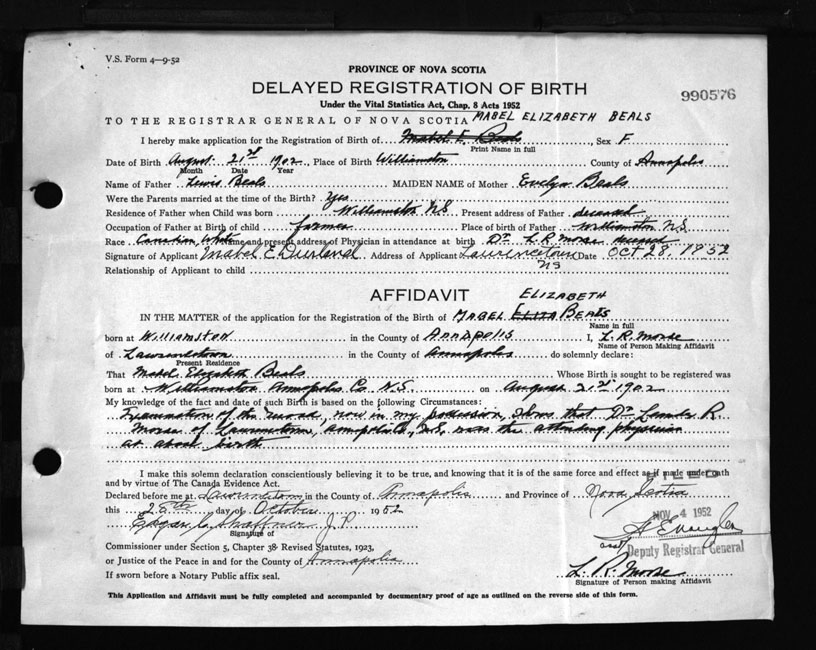 V.S. Form 4—9-52
PROVINCE OF NOVA SCOTIA
DELAYED REGISTRATION OF BIRTH
990576
Under the Vital Statistics Act, Chap. 8 Acts 1952
MABEL ELIZABETH BEALS
TO THE REGISTRAR GENERAL OF NOVA SCOTIA
I hereby make application for the Registration of Birth of Mabel E. Beals, Sex F
Print Name in full
Date of Birth August 21st 1902, Place of Birth Williamston County of Annapolis
Month Date Year
Name of Father Lewis Beals MAIDEN NAME of Mother Evelyn Beals
Were the Parents married at time of the Birth? Yes
Residence of Father when Child was born Williamston N.S. Present address of Father deceased
Occupation of Father at Birth of child farmer Place of birth of Father Williamston N.S.
Race Canadian White Name and present address of Physician in attendance at birth Dr. L. R. Morse deceased
Signature of Applicant Mabel E Durland Address of Applicant Lawrencetown Date OCT 28, 1952
NS
Relationship of Applicant to child
AFFIDAVIT
ELIZABETH
IN THE MATTER of the application for the Registration of the Birth of MABEL ELIZA BEALS
Name in full
born at Williamston in the County of Annapolis I, L. R. Morse
Name of Person Making Affidavit
of Lawrencetown in the County of Annapolis do solemnly declare:
Present Residence
That Mabel Elizabeth Beals Whose Birth is sought to be registered was
born at Williamston Annapolis Co N.S. on August 21st 1902
My knowledge of the fact and date of such Birth is based on the following Circumstances:
Examination of the record, now in my possession, shows that Dr. R.
Morse of Lawrencetown, N.S. was the attending physician
at above birth
I make this solemn declaration conscientiously believing it to be true, and knowing that it is of the same force and effect as if made under oath
and by virtue of The Canada Evidence Act.
Declared before me at Lawrencetown in the County of Annapolis and Province of Nova Scotia
this 28th day of October 1952
NOV 4 1952
Edgar Shaffner J.P.
Signature of
Deputy Registrar General
Commissioner under Section 5, Chapter 38 Revised Statutes, 1923,
or Justice of the Peace in and for the County of Annapolis
L. R. Morse
If sworn before a Notary Public affix seal.
Signature of Person making Affidavit
This Application and Affidavit must be fully completed and accompanied by documentary proof of age as outlined on the reverse side of this form.